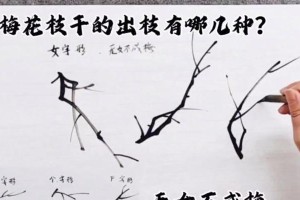 梅花枝干的出枝有哪几种?
女字形,无女不成梅
个字形
无女不成梅